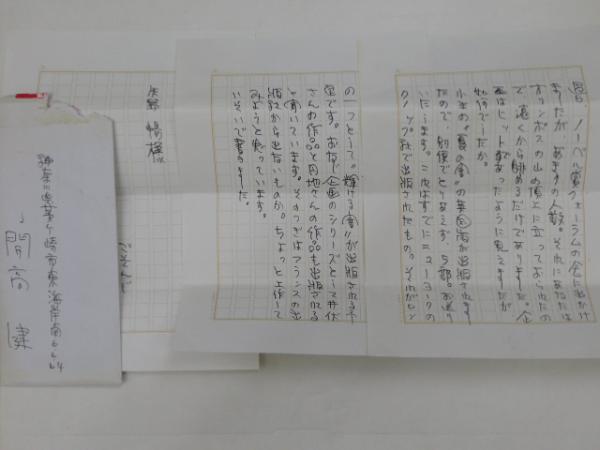 ノーベル賞フォーラムの会に出かけ
ましたが、あまりの人数。それにあなたは
オリンポスの山の頂上に立っておられたの
で、遠くから眺めるだけでありました。企
画はヒットであったように見えましたが
如何でしたか。
小生の〝夏の闇〟の英国版が出版されまし
たので、別便でとりあえず、5部。お送り
いたします。これはすでにニューヨークの
クノップ社で出版されたもの。それが
の一つとして。〝輝ける闇〟が出版される予
定です。おなじ企画のシリーズとして井伏
さんの作品と円地さんの作品も出版される
と聞いています。そのつぎはフランスの出
版社から出ないものか。ちょっと工作して
みようと思っています。
いそいで書きました。
矢野 暢様
神奈川県茅ヶ崎市東海岸南6-6-64
開高 健